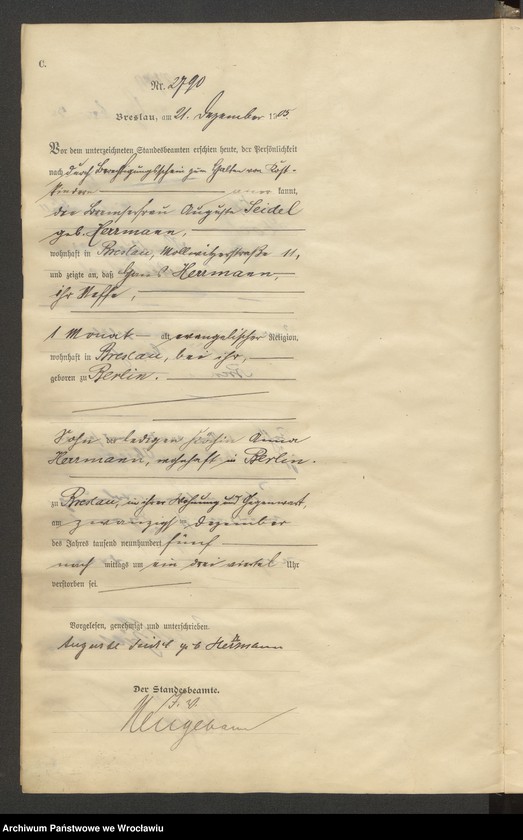 C.
Nr. 2790
Breslau, am 21. Dezember 1905.
Vor dem unterzeichneten Standesbeamten erschien heute, der Persönlichkeit
nach durch zum Halten von Kost-
kindern kannt,
die Auguste Seidel
geb. Herrmann,
wohnhaft in Breslau, Mollwitzerstraße 11,
und zeigte an, daß Herrmann,
ihr Neffe,
1 Monat alt, evangelischer Religion,
wohnhaft in Breslau, bei ihr,
geboren zu Berlin.
Sohn der ledigen Köchin Anna
Herrmann, wohnhaft in Berlin.
zu Breslau, in ihrer Wohnung und Gegenwart,
am zwanzigsten Dezember
des Jahres tausend neunhundert fünf
nach mittags um ein drei viertel Uhr
verstorben sei.
Vorgelesen, genehmigt und unterschrieben.
Auguste Seidel geb Herrmann
Der Standesbeamte.
J. V.
Neugebauer
Archiwum Państwowe we Wrocławiu